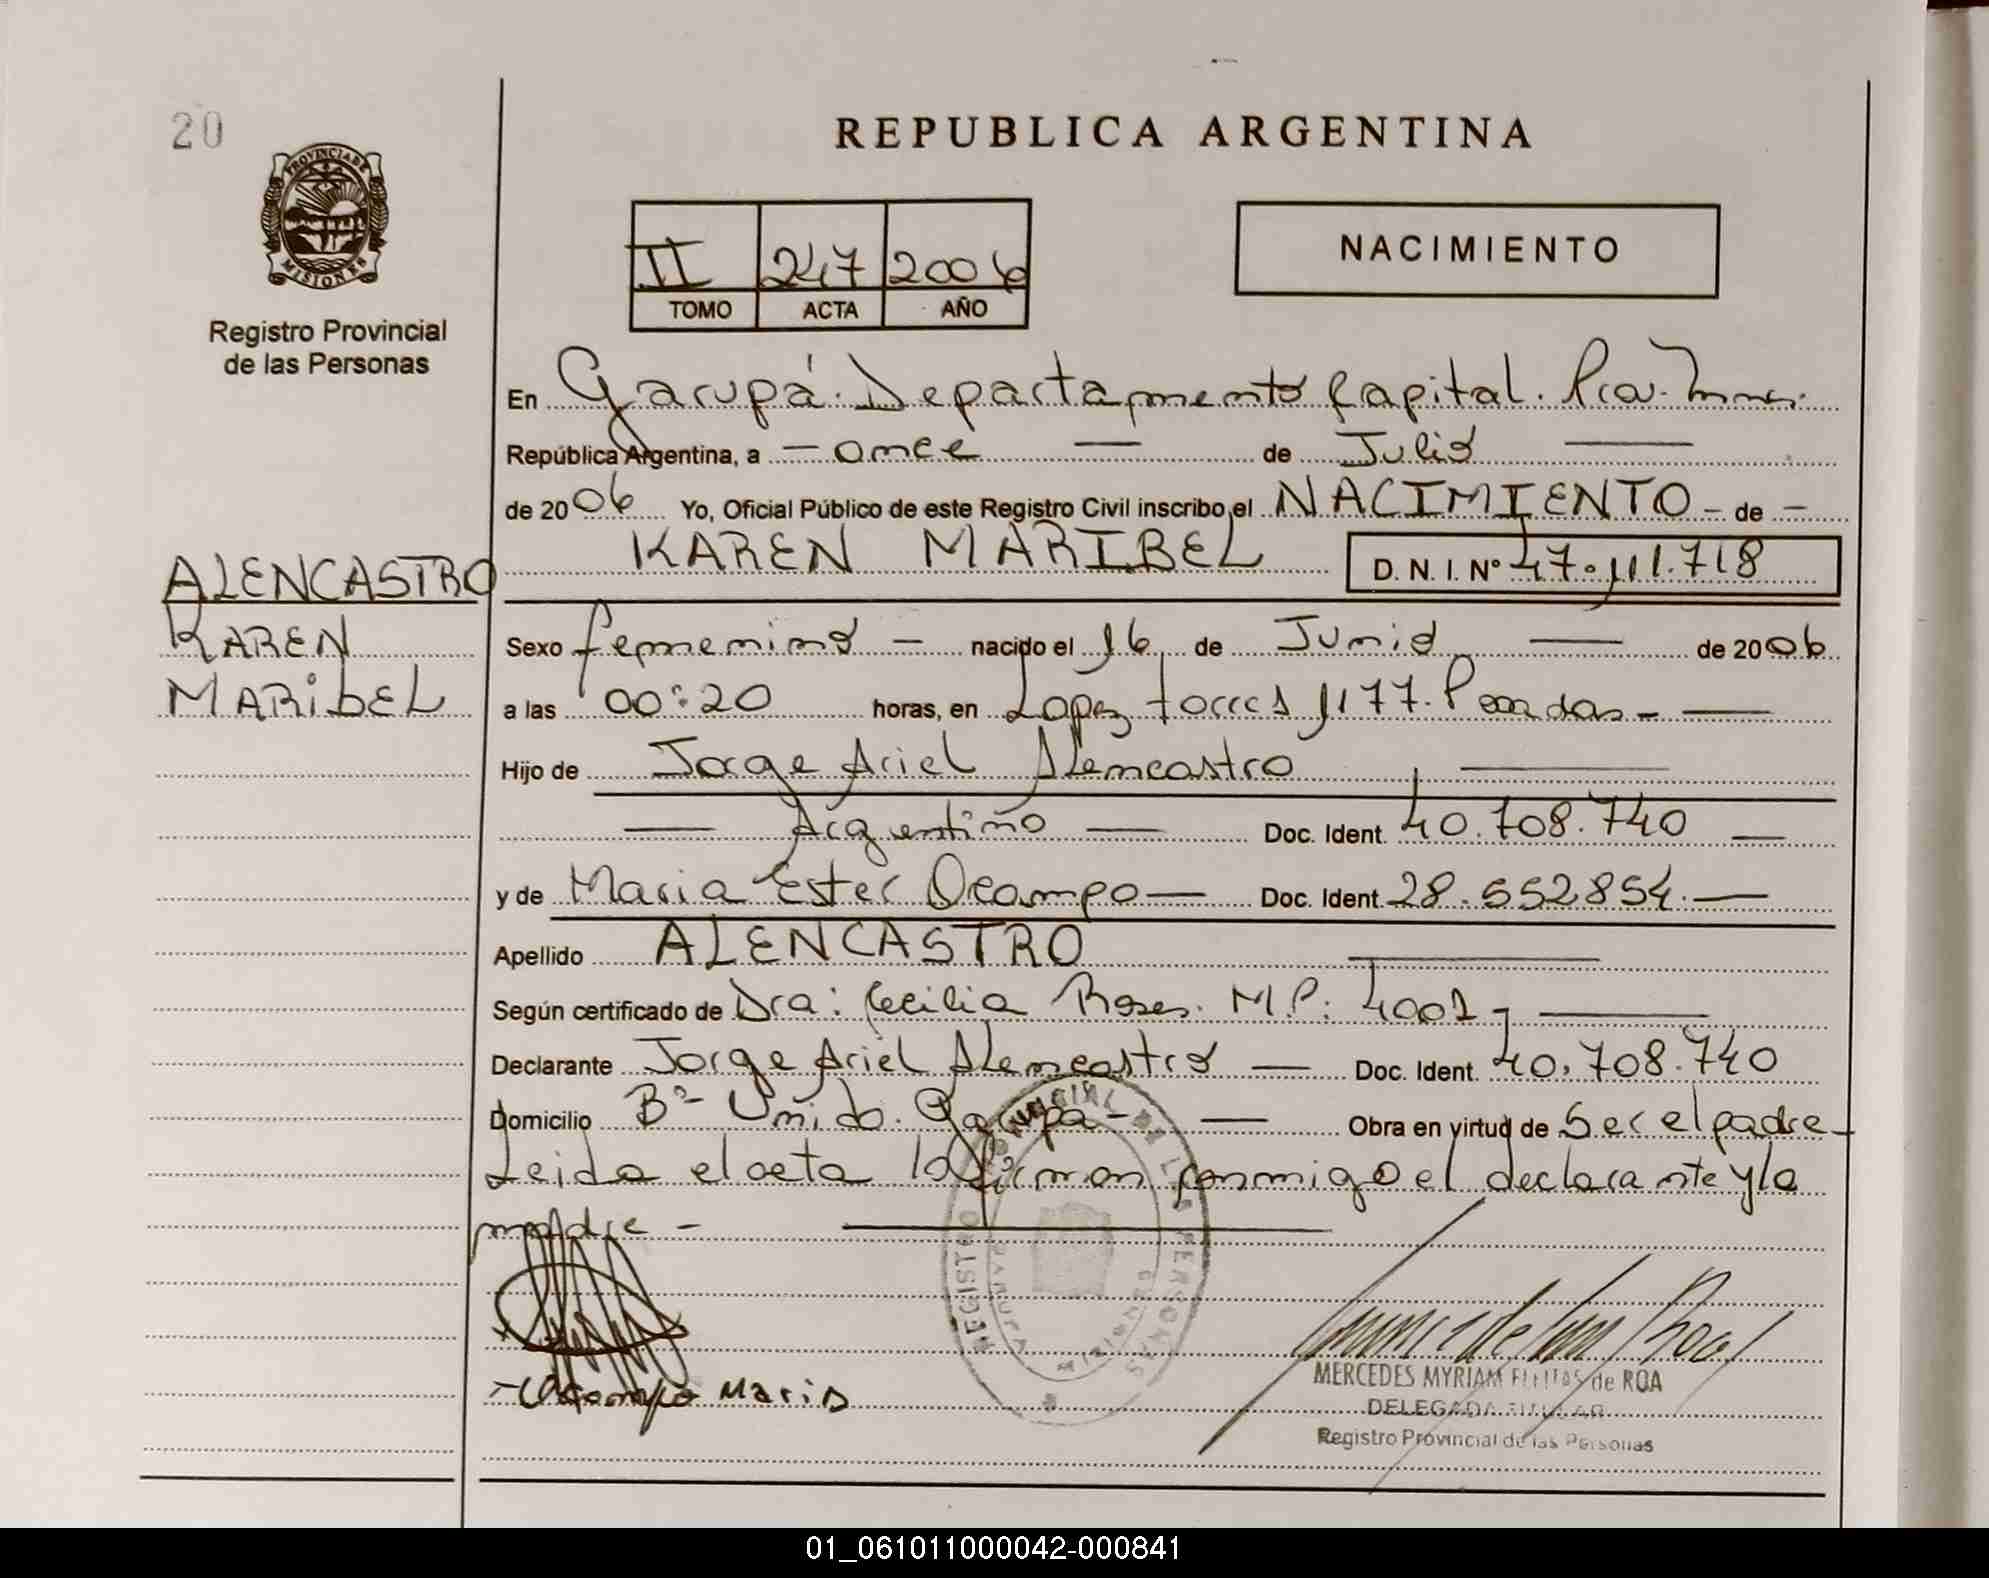 20
REPUBLICA ARGENTINA
PROVINCIA DE
MISIONES
Registro Provincial
de las Personas
II 247 2006
TOMO ACTA AÑO
NACIMIENTO
En Garupá. Departamento Capital. Prov. Mnes.
República Argentina, a - once — de Julio —
de 2006 Yo, Oficial Público de este Registro Civil inscribo el NACIMIENTO - de -
KAREN MARIBEL D. N. I. Nº 47.111.718
ALENCASTRO
KAREN
MARIBEL
Sexo femenino - nacido el 16 de Junio — de 2006
a las 00:20 horas, en Lopez torres 1177. Posadas - —
Hijo de Jorge Ariel Alencastro —
— Argentino — Doc. Ident. 40.708.740 —
y de Maria Ester Ocampo — Doc. Ident. 28.552854. —
Apellido ALENCASTRO —
Según certificado de Dra: Cecilia Roses. M.P: 4001 - —
Declarante Jorge Ariel Alencastro — Doc. Ident. 40.708.740
Domicilio Bº- Unido. Garupa - — Obra en virtud de Ser el padre -
Leida el acta la firman conmigo el declarante y la
madre - —
REGISTRO PROVINCIAL DE LAS PERSONAS
MISIONES
Ocampo Maria
MERCEDES MYRIAM FLEITAS de ROA
DELEGADA TITULAR
Registro Provincial de las Personas
01_061011000042-000841